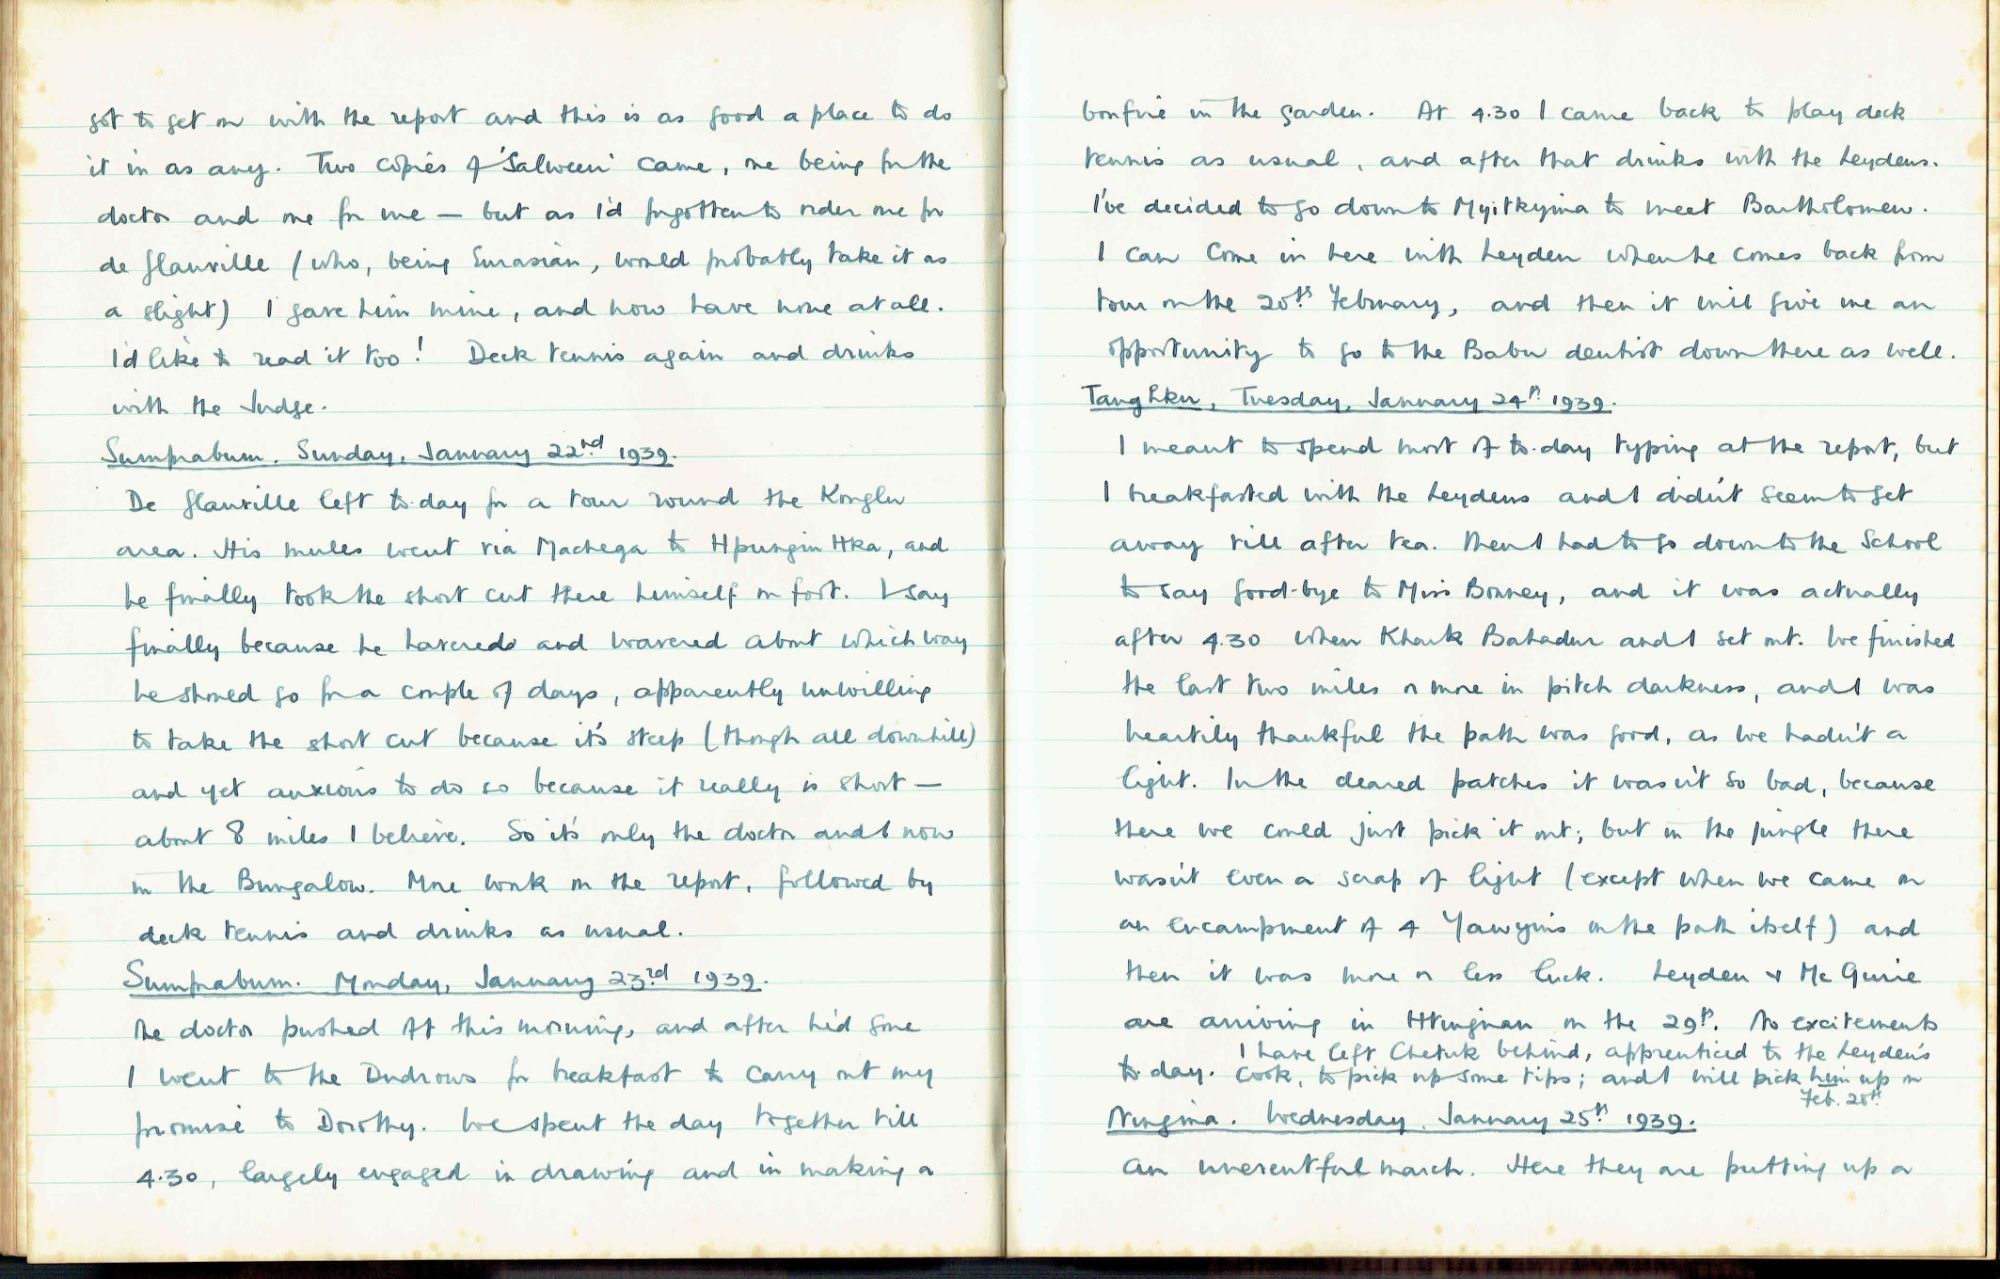 got to get on with the report and this is as good a place to do
it in as any. Two copies of 'Salween' came, one being for the
doctor and one for me — but as I'd forgotten to order one for
de Glanville (who, being Eurasian, would probably take it as
a slight) I gave him mine, and now have none at all.
I'd like to read it too! Deck tennis again and drinks
with the Judge.
Sumprabum. Sunday, January 22nd 1939.
De Glanville left to-day for a tour round the Konglu
area. His mules went via Machega to Hpungin Hka, and
he finally took the short cut there himself on foot. I say
finally because he havered and wavered about which way
he should go for a couple of days, apparently unwilling
to take the short cut because it's steep (though all downhill)
and yet anxious to do so because it really is short —
about 8 miles I believe. So it's only the doctor and I now
in the Bungalow. More work on the report, followed by
deck tennis and drinks as usual.
Sumprabum. Monday, January 23rd 1939.
The doctor pushed off this morning, and after he'd gone
I went to the Dudrows for breakfast to carry out my
promise to Dorothy. We spent the day together till
4.30, largely engaged in drawing and in making a
bonfire in the garden. At 4.30 I came back to play deck
tennis as usual, and after that drinks with the Leydens.
I've decided to go down to Myitkyina to meet Bartholomew.
I can come in here with Leyden when he comes back from
tour on the 20th February, and then it will give me an
opportunity to go to the Babu dentist down there as well.
Tanghku, Tuesday, January 24th 1939.
I meant to spend most of to-day typing at the report, but
I breakfasted with the Leydens and I didn't seem to get
away till after tea. Then I had to go down to the School
to say good-bye to Miss Bonney, and it was actually
after 4.30 when Khark Bahadur and I set out. We finished
the last two miles or more in pitch darkness, and I was
heartily thankful the path was good, as we hadn't a
light. In the cleared patches it wasn't so bad, because
there we could just pick it out; but in the jungle there
wasn't even a scrap of light (except when we came on
an encampment of 4 Yawyins on the path itself) and
then it was more or less luck. Leyden & McGuire
are arriving in Htingnan on the 29th. No excitements
to-day. I have left Chetuk behind, apprenticed to the Leyden's
cook, to pick up some tips; and I will pick him up on
Feb. 20th.
Ningma. Wednesday, January 25th 1939.
An uneventful march. Here they are putting up a